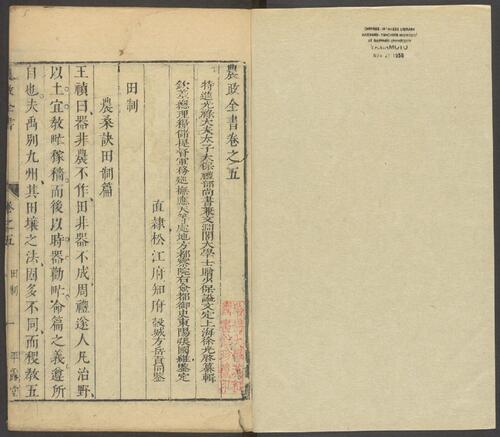 農政全書卷之五
特進光祿大夫太子太保禮部尚書兼文淵閣大學士贈少保謚文定上海徐光啓纂輯
欽差總理糧儲提督軍務巡撫應天等處地方都察院右僉都御史東陽張國維鑒定
直隸松江府知府穀城方岳貢同鑒
田制
農桑訣田制篇
王禎曰器非農不作田非器不成周禮遂人凡治野
以土宜教甿稼穡而後以時器勸甿命篇之義遵所
自也夫禹別九州其田壤之法固多不同而稷教五
卷之五 田制 一 平露堂
CHINESE-JAPANESE LIBRARY
HARVARD-YENCHING INSTITUTE
AT HARVARD UNIVERSITY
1938